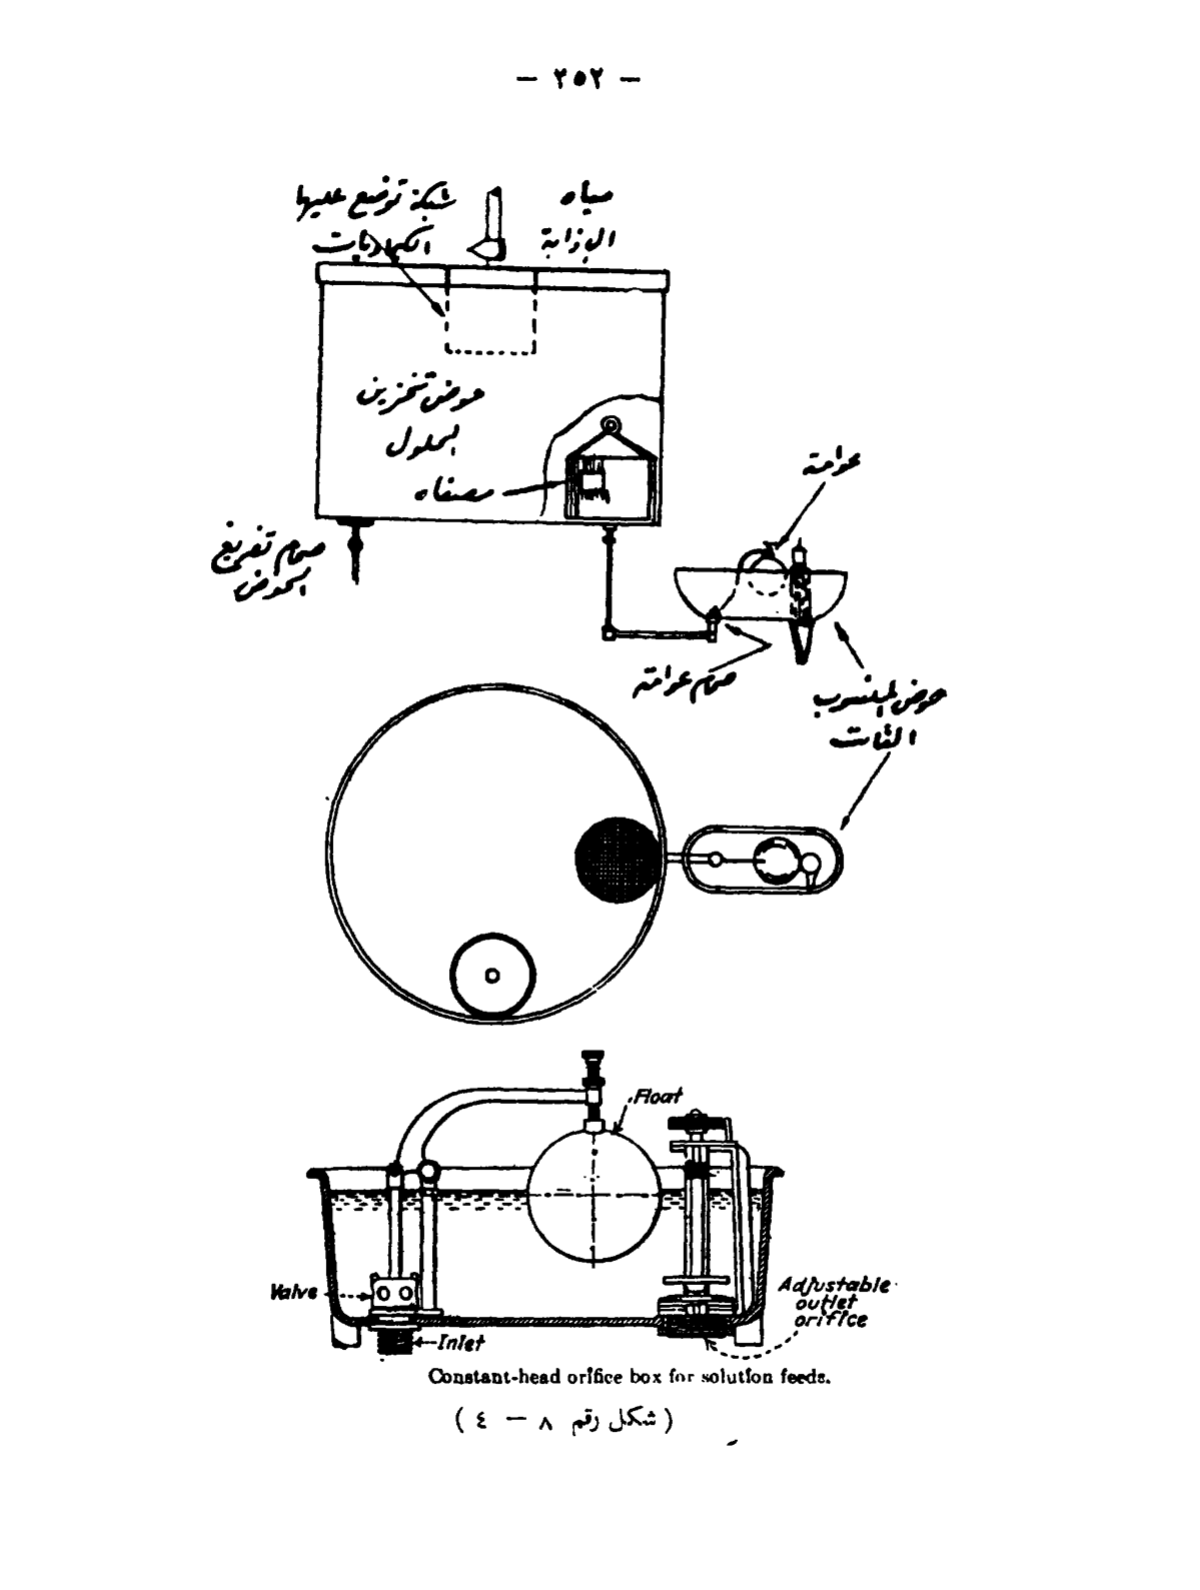 — ٢٥٢ —
مياه
الإذابة
شبكة توضع عليها
الكيماويات
حوض تخزين
المحلول
مصفاه
عوامة
صمام تفريغ
الحوض
صمام عوامة
حوض المنسوب
الثابت
Float
Valve
Adjustable
outlet
orifice
Inlet
Constant-head orifice box for solution feeds.
( شكل رقم ٨ — ٤ )